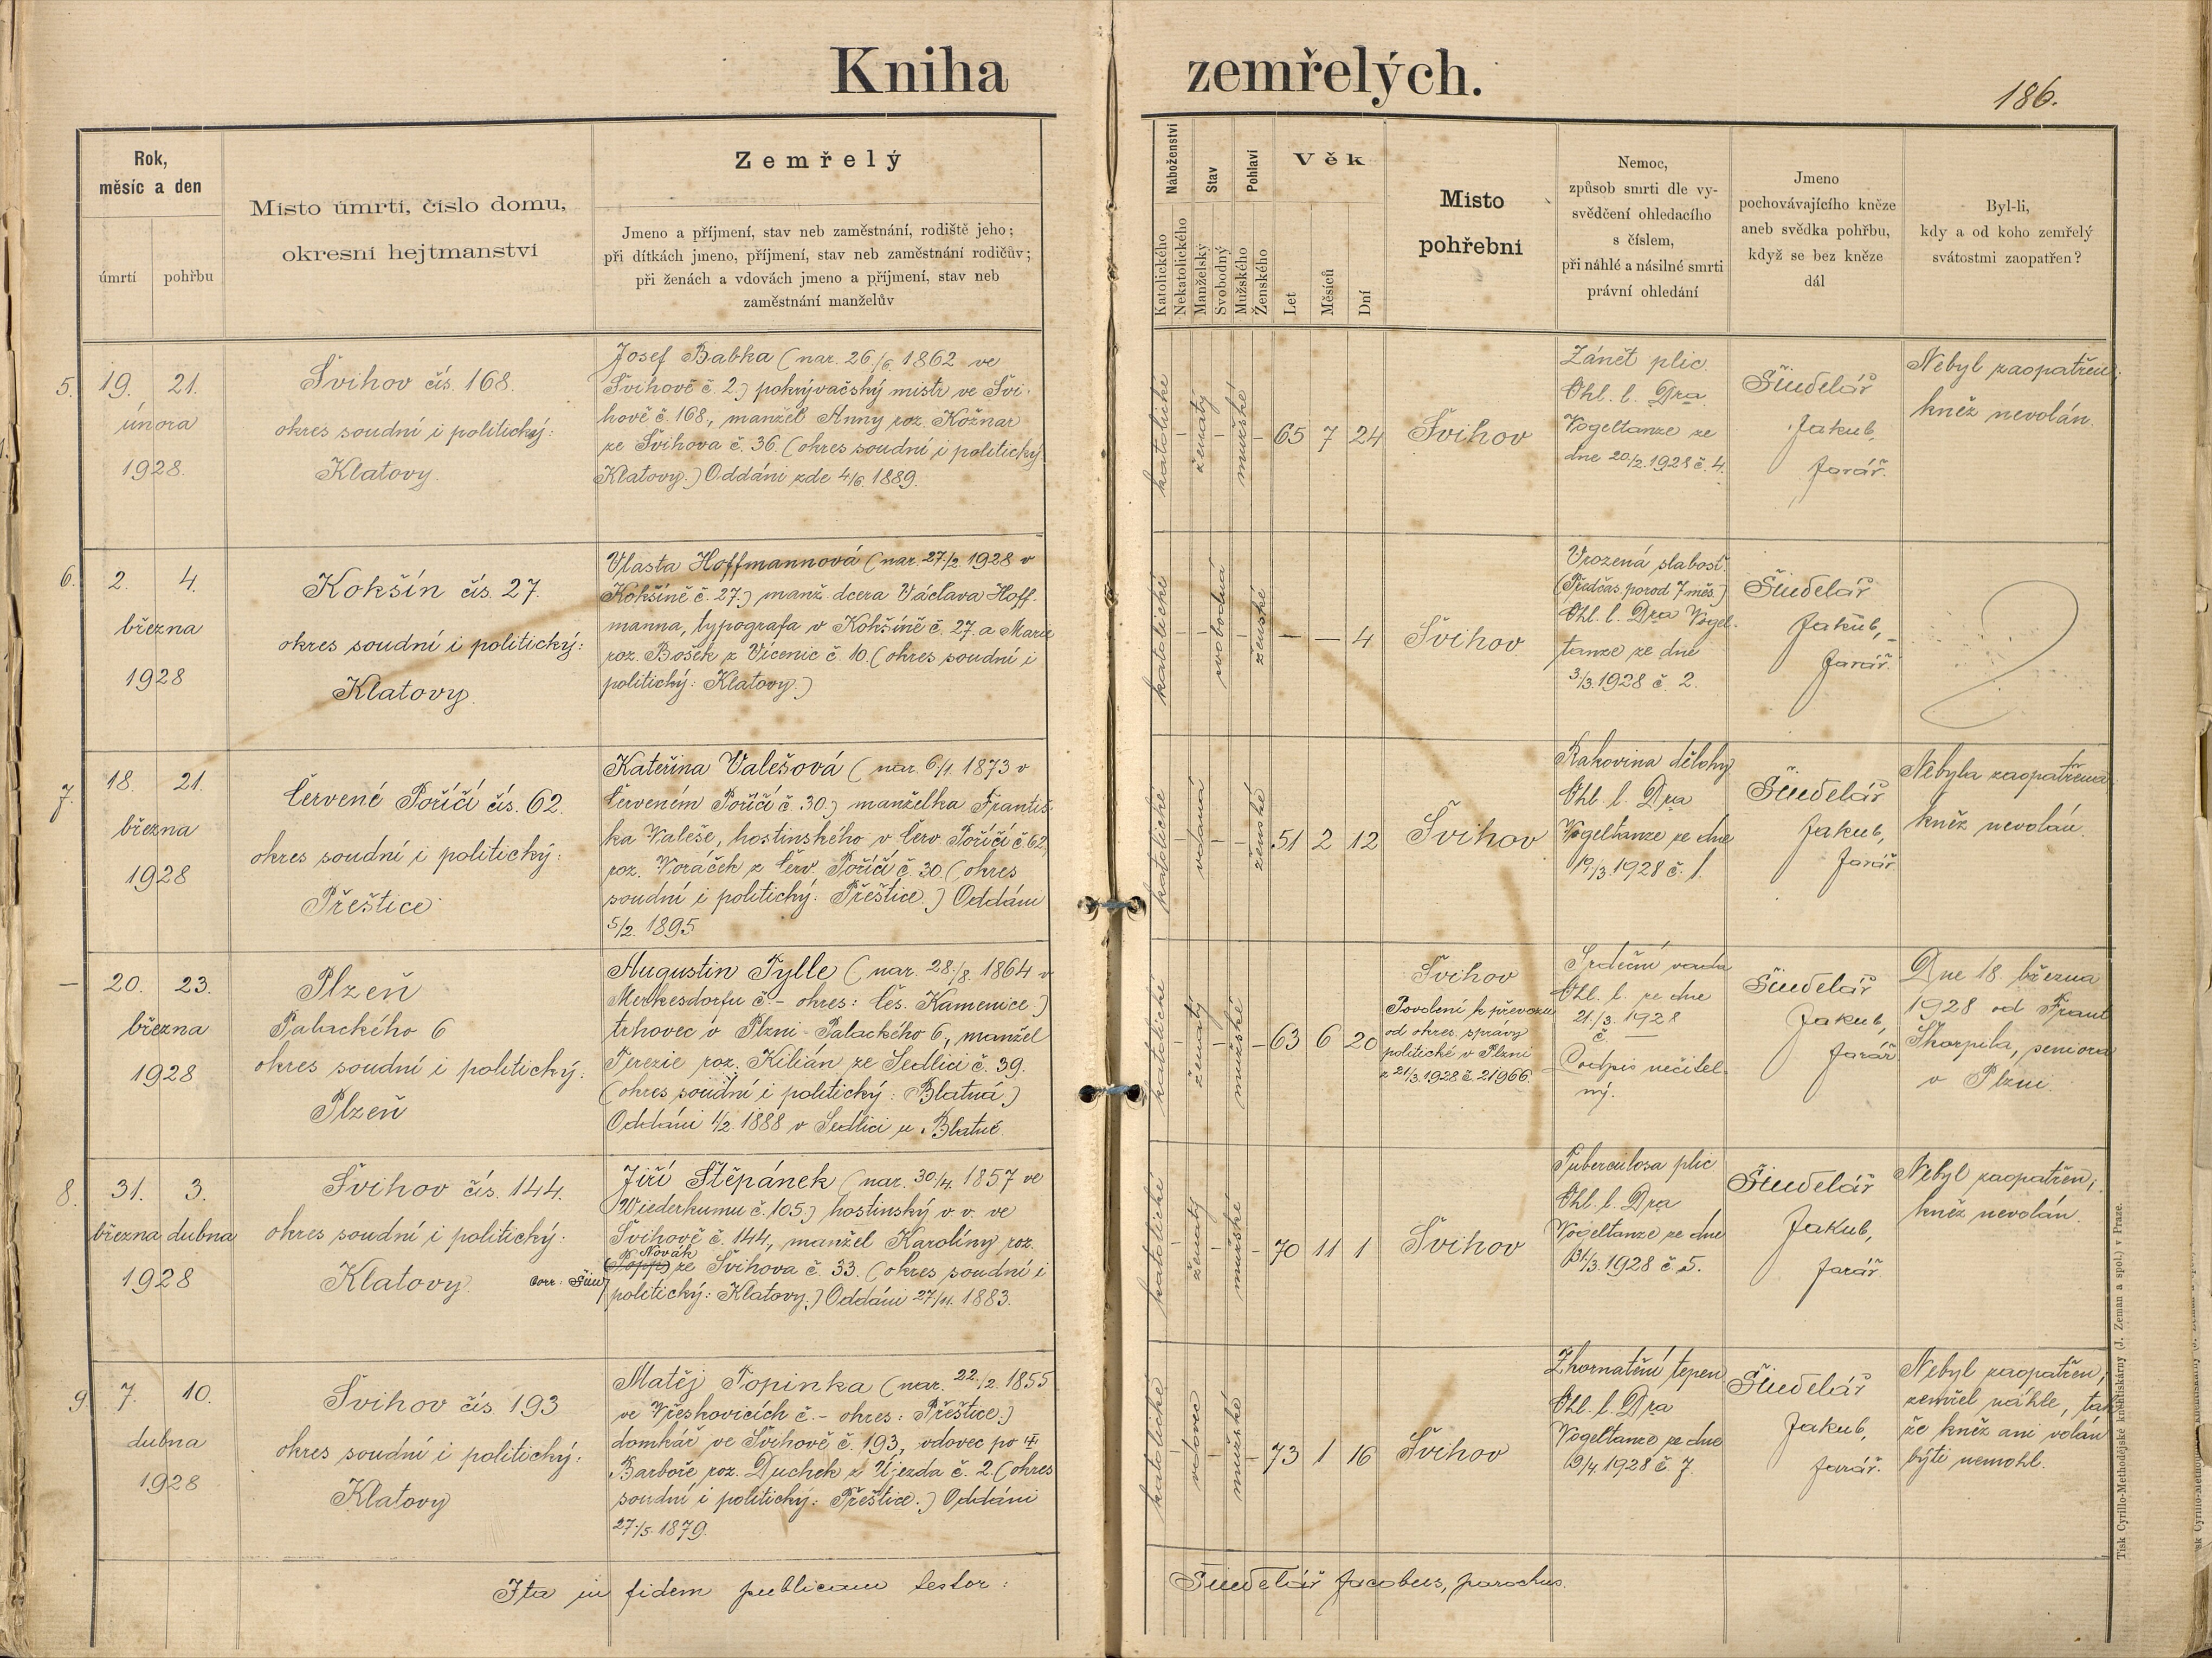 Kniha zemřelých.
186.
Rok,
měsíc a den
úmrtí
pohřbu
Místo úmrtí, číslo domu,
okresní hejtmanství
Zemřelý
Jmeno a příjmení, stav neb zaměstnání, rodiště jeho;
při dítkách jmeno, příjmení, stav neb zaměstnání rodičův;
při ženách a vdovách jmeno a příjmení, stav neb
zaměstnání manželův
Náboženství
Katolického
Nekatolického
Stav
Manželský
Svobodný
Pohlaví
Mužského
Ženského
Věk
Let
Měsíců
Dní
Místo
pohřební
Nemoc,
způsob smrti dle vy-
svědčení ohledacího
s číslem,
při náhlé a násilné smrti
právní ohledání
Jmeno
pochovávajícího kněze
aneb svědka pohřbu,
když se bez kněze
dál
Byl-li,
kdy a od koho zemřelý
svátostmi zaopatřen?
5.
19. 21.
února
1928.
Švihov čís. 168.
okres soudní i politický:
Klatovy.
Josef Babka (nar. 26/6. 1862 ve
Švihově č. 2.) pokrývačský mistr ve Švi-
hově č. 168, manžel Anny roz. Kožnar
ze Švihova č. 36. (okres soudní i politický
Klatovy.) Oddáni zde 4/6. 1889.
katolické
-
ženatý
-
mužské
-
65 7 24
Švihov
Zánět plic.
Ohl. l. Dra
Vogeltanze ze
dne 20/2. 1928 č. 4.
Šindelář
Jakub,
farář.
Nebyl zaopatřen;
kněz nevolán.
6.
2. 4.
března
1928
Kokšín čís. 27.
okres soudní i politický:
Klatovy.
Vlasta Hoffmannová (nar. 27/2. 1928 v
Kokšíně č. 27.) manž. dcera Václava Hoff-
manna, typografa v Kokšíně č. 27. a Marie
roz. Bošek z Vícenic č. 10. (okres soudní i
politický: Klatovy.)
katolické
-
-
svobodná
-
ženské
— — 4
Švihov
Vrozená slabosť.
(Předčas. porod 7 měs.)
Ohl. l. Dra Vogel-
tanze ze dne
3/3. 1928 č. 2.
Šindelář
Jakub,
farář.
7.
18. 21.
března
1928
Červené Poříčí čís. 62.
okres soudní i politický:
Přeštice
Kateřina Valešová (nar. 6/1. 1873 v
Červeném Poříčí č. 30.) manželka Františ-
ka Valeše, hostinského v Červ. Poříčí č. 62,
roz. Voráček z Červ. Poříčí č. 30. (okres
soudní i politický: Přeštice.) Oddáni
5/2. 1895
katolické
vdaná
-
-
ženské
51 2 12
Švihov
Rakovina dělohy
Ohl. l. Dra
Vogeltanze ze dne
19/3. 1928 č. 1.
Šindelář
Jakub,
farář
Nebyla zaopatřena
kněz nevolán.
—
20. 23.
března
1928
Plzeň
Palackého 6
okres soudní i politický:
Plzeň
Augustin Tylle (nar. 28./8. 1864 v
Merkesdorfu č. - okres: Čes. Kamenice.)
trhovec v Plzni - Palackého 6., manžel
Terezie roz. Kilián ze Sedlici č. 39.
(okres soudní i politický: Blatná.)
Oddáni 1/2. 1888 v Sedlici u Blatné.
katolické
-
ženatý
-
mužské
-
63 6 20
Švihov
Povolení k převozu
od okres. správy
politické v Plzni
z 21/3. 1928 č. 21966.
Srdeční vada
Ohl. l. ze dne
21./3. 1928
č. —
Podpis nečitel-
ný.
Šindelář
Jakub,
farář
Dne 18. března
1928 od Frant.
Škorpila, seniora
v Plzni.
8.
31. 3.
března dubna
1928
Švihov čís. 144.
okres soudní i politický:
Klatovy.
Corr: Šin.
Jiří Štěpánek (nar. 30/4. 1857 ve
Wiederkumu č. 105.) hostinský v. v. ve
Švihově č. 144., manžel Karolíny roz.
Novák
(Popp) ze Švihova č. 33. (okres soudní i
politický: Klatovy.) Oddáni 27./11. 1883.
katolické
-
ženatý
-
mužské
-
70 11 1
Švihov
Tuberculosa plic
Ohl. l. Dra
Vogeltanze ze dne
31./3. 1928 č. 5.
Šindelář
Jakub,
farář.
Nebyl zaopatřen;
kněz nevolán.
9.
7. 10.
dubna
1928
Švihov čís. 193
okres soudní i politický:
Klatovy
Matěj Topinka (nar. 22./2. 1855
ve Vřeskovicích č. - okres: Přeštice.)
domkář ve Švihově č. 193, vdovec po †
Barboře roz. Duchek z Újezda č. 2. (okres
soudní i politický: Přeštice.) Oddáni
27./5. 1879.
katolické
-
vdovec
-
mužské
-
73 1 16
Švihov
Zkornatění tepen
Ohl. l. Dra
Vogeltanze ze dne
9/4. 1928 č. 7.
Šindelář
Jakub,
farář.
Nebyl zaopatřen;
zemřel náhle, tak
že kněz ani volán
býti nemohl.
Ita in fidem publicam testor: Šindelář Jacobus, parochus.
Tisk Cyrillo-Methodějské knihtiskárny (J. Zeman a spol.) v Praze.